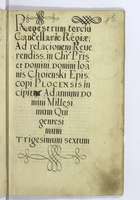 Regestrum terciu
Cancellariæ Regiæ,
Ad relacionem Reue
rendiss. in Chr. Pris
et Domini Domini Ioã
nis Choienski Epis
copi PLOCENSIS in
cipit Ad annum Do
mini Millesi
mum Qui
gentesi
mum
Trigesimum sextum